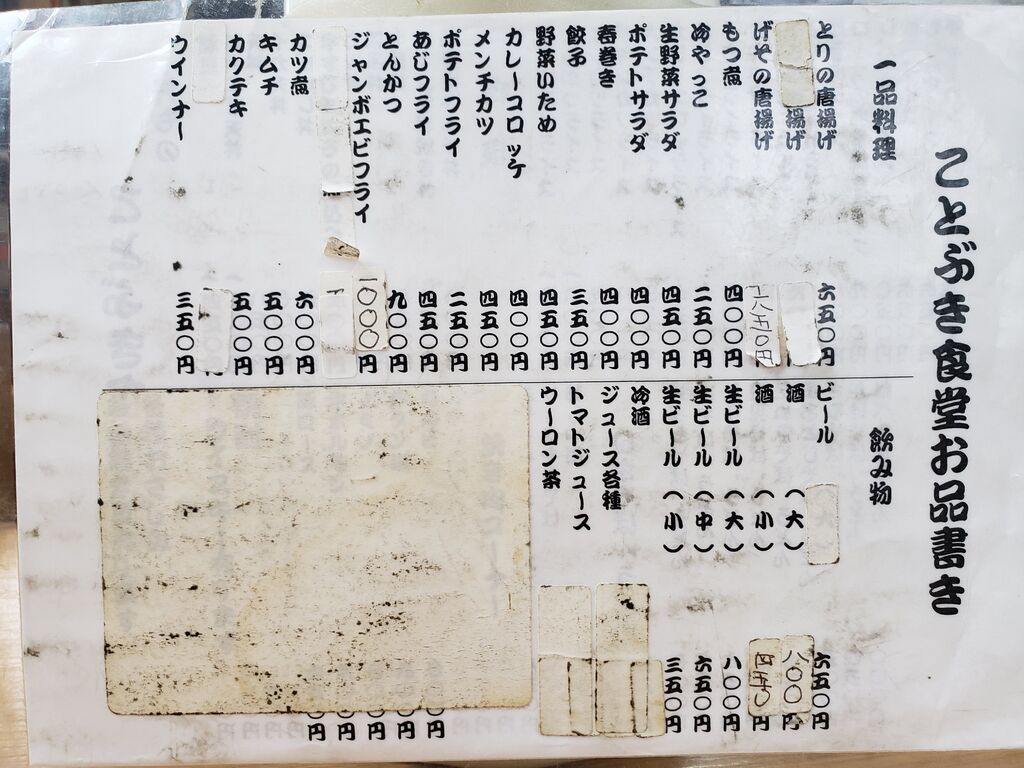 ことぶき食堂お品書き
一品料理
とりの唐揚げ 六五〇円
揚げ
げその唐揚げ 六五〇円
もつ煮 四〇〇円
冷やっこ 二五〇円
生野菜サラダ 四五〇円
ポテトサラダ 四〇〇円
春巻き 四〇〇円
餃子 三五〇円
野菜いため 四五〇円
カレーコロッケ 四〇〇円
メンチカツ 四五〇円
ポテトフライ 二五〇円
あじフライ 四五〇円
とんかつ 九〇〇円
ジャンボエビフライ 一〇〇〇円
カツ煮 六〇〇円
キムチ 五〇〇円
カクテキ 五〇〇円
ウインナー 三五〇円
飲み物
ビール 六五〇円
酒（大） 八〇〇円
酒（小） 四五〇円
生ビール（大） 八〇〇円
生ビール（中） 六五〇円
生ビール（小） 三五〇円
冷酒
ジュース各種
トマトジュース
ウーロン茶